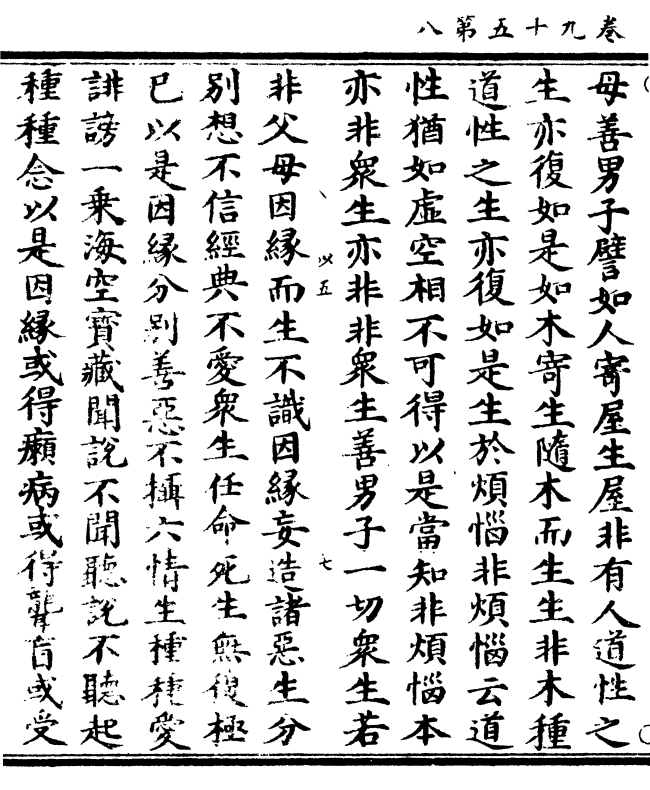 卷九十五第八
母善男子譬如人寄屋生屋非有人道性之
生亦復如是如木寄生隨木而生生非木種
道性之生亦復如是生於煩惱非煩惱云道
性猶如虛空相不可得以是當知非煩惱本
亦非衆生亦非非衆生善男子一切衆生若
以五
七
非父母因緣而生不識因緣妄造諸惡生分
別想不信經典不愛衆生任命死生無復極
已以是因緣分別善惡不攝六情生種種愛
誹謗一乗海空寶藏聞說不聞聽說不聽起
種種念以是因緣或得癩病或得聾盲或受